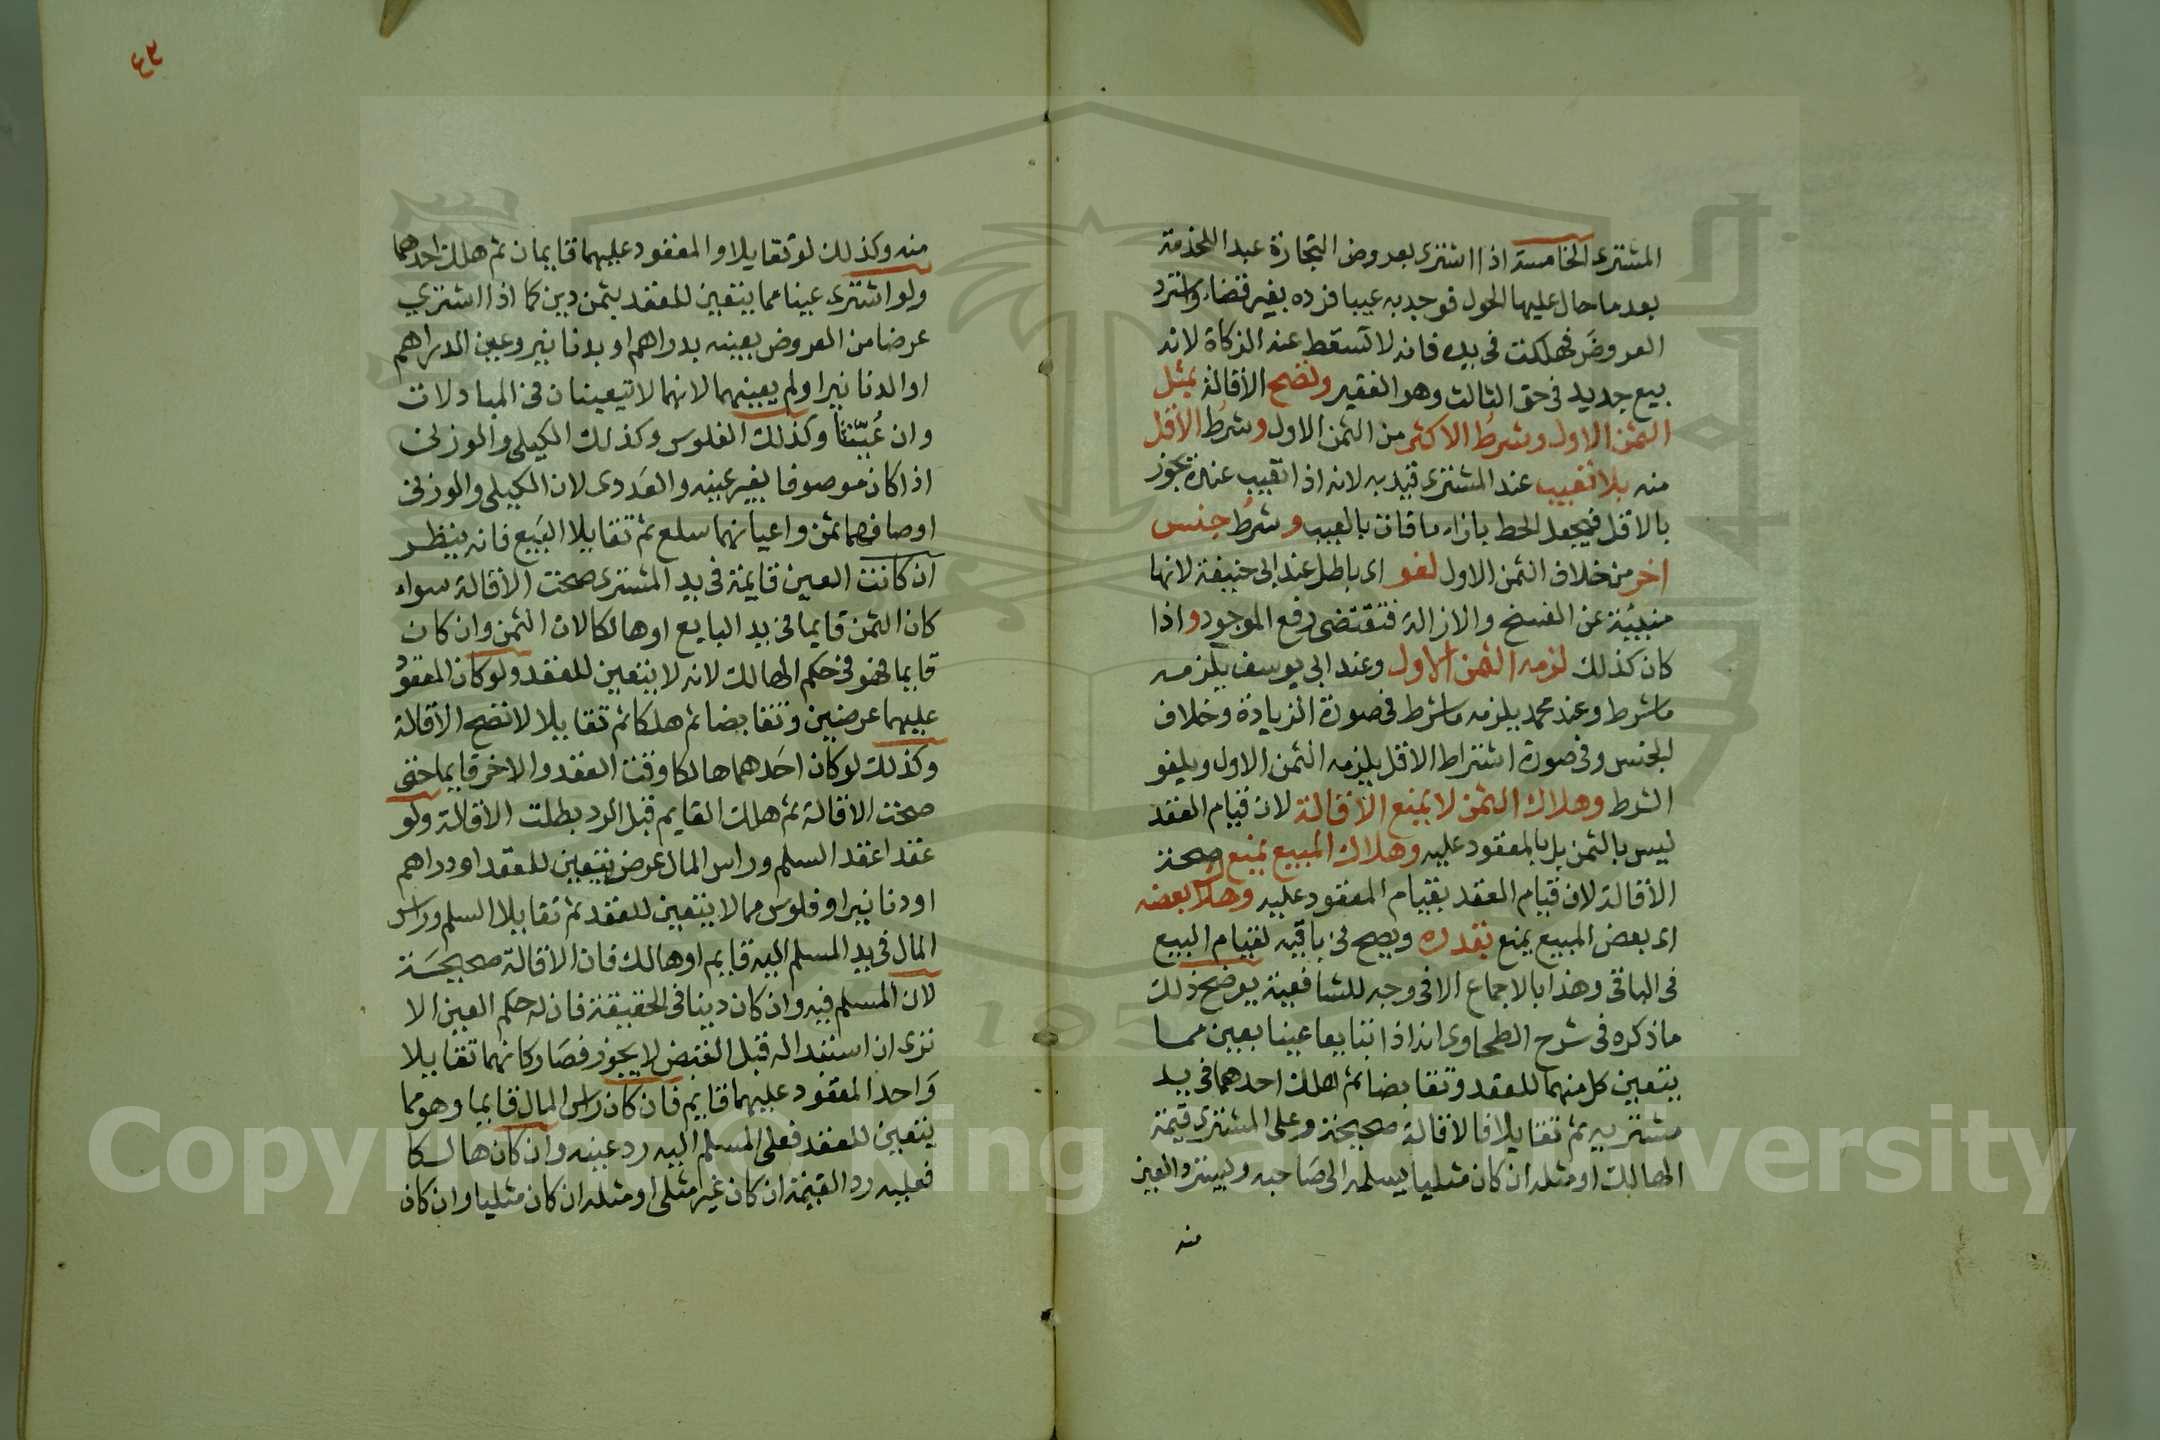 المشترى الخامسة اذا اشترى بعروض التجارة عبدا للخدمة
بعد ما حال عليها الحول فوجد به عيبا فرده بغير قضاء واسترد
العروض فهلكت فى يده فانه لا تسقط عنه الزكاة لانه
بيع جديد فى حق الثالث وهو الفقير وتصح الأقالة بمثل
الثمن الاول وشرط الاكثر من الثمن الاول وشرط الأقل
منه بلا تعييب عند المشترى قيد به لانه اذا تعيب عنده يجوز
بالاقل فيجعل الحط بازاء ما فات بالعيب وشرط جنس
اخر من خلاف الثمن الاول لغو اى باطل عند ابى حنيفة لانها
منبئة عن الفسخ والازالة فتقتضى رفع الموجود واذا
كان كذلك لزمه الثمن الاول وعند ابى يوسف يلزمه
ما شرط وعند محمد يلزمه ما شرط فى صورة الزيادة وخلاف
الجنس وفى صورة اشتراط الاقل يلزمه الثمن الاول ويلغو
الشرط وهلاك الثمن لا يمنع الأقالة لان قيام العقد
ليس بالثمن بل بالمعقود عليه وهلاك المبيع يمنع صحة
الأقالة لان قيام العقد بقيام المعقود عليه وهلاك بعضه
اى بعض المبيع يمنع بقدره ويصح فى باقيه لقيام البيع
فى الباقى وهذا بالاجماع الا فى وجه للشافعية يوضح ذلك
ما ذكره فى شرح الطحاوى انه اذا تبايعا عينا بعين مما
يتعين كل منهما للعقد وتقابضا ثم هلك احدهما فى يد
مشتريه ثم تقايلا فالاقالة صحيحة وعلى المشترى قيمة
الهالك او مثله ان كان مثليا يسلمه الى صاحبه ويسترد العين
منه
٤٢
منه وكذلك لو تقايلا والمعقود عليهما قايمان ثم هلك احدهما
ولو اشترى عينا مما يتعين للعقد بثمن دين كما اذا اشترى
عرضا من العروض بعينه بدراهم او بدنانير وعين الدراهم
او الدنانير او لم يعينهما لانهما لا يتعينان فى المبادلات
وان عُيّنَتا وكذلك الفلوس وكذلك الكيلى والوزنى
اذا كان موصوفا بغير عينه والعددى لان الكيلى والوزنى
اوصافهما ثمن واعيانهما سلع ثم تقايلا البيع فانه ينظر
ان كانت العين قايمة فى يد المشترى صحت الأقالة سواء
كان الثمن قايما فى يد البايع او هالكا لان الثمن وان كان
قايما فهو فى حكم الهالك لانه لا يتعين للعقد ولو كان المعقود
عليهما عرضين وتقابضا ثم هلكا ثم تقايلا لا تصح الأقالة
وكذلك لو كان احدهما هالكا وقت العقد والاخر قايما حتى
صحت الاقالة ثم هلك القايم قبل الرد بطلت الأقالة ولو
عقدا عقد السلم وراس المال عرض يتعين للعقد او دراهم
او دنانير او فلوس مما لا يتعين للعقد ثم تقايلا السلم وراس
المال فى يد المسلم اليه قايم او هالك فان الاقالة صحيحة
لان المسلم فيه وان كان دينا فى الحقيقة فان له حكم العين الا
ترى ان استبداله قبل القبض لا يجوز فصار كانهما تقايلا
واحد المعقود عليهما قايم فان كان راس المال قايما وهو مما
يتعين للعقد فعلى المسلم اليه رد عينه وان كان هالكا
فعليه رد القيمة ان كان غير مثلى او مثله ان كان مثليا وان كان
Copyright © King Saud University